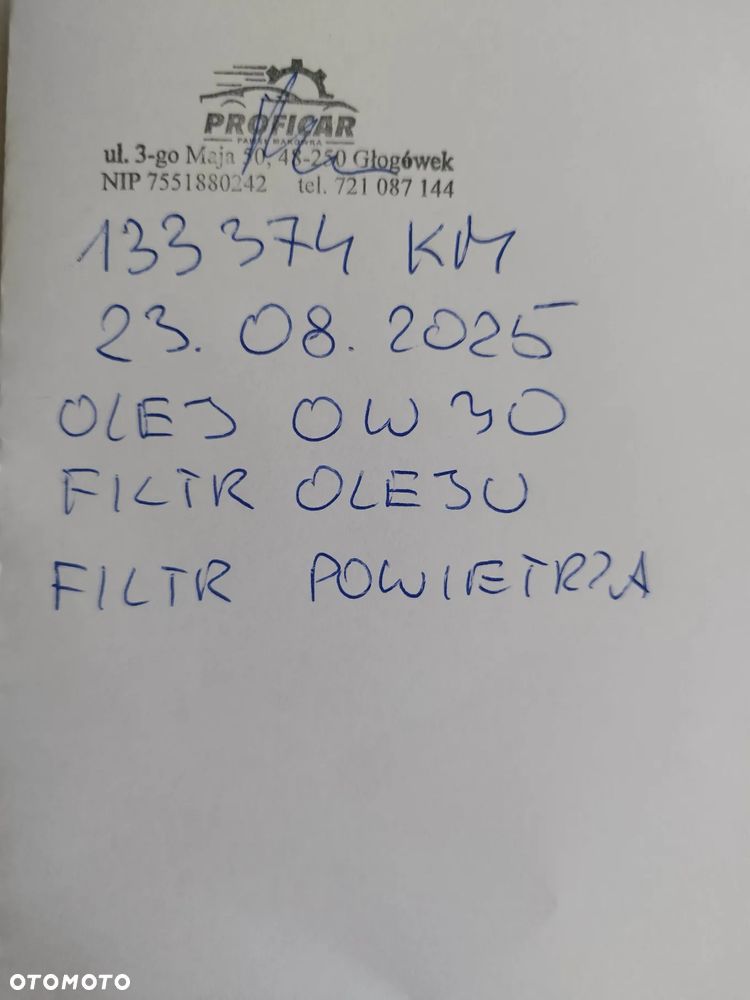 PROFICAR
PAWEŁ MAKÓWKA
ul. 3-go Maja 50, 48-250 Głogówek
NIP 7551880242 tel. 721 087 144
133 374 KM
23. 08. 2025
OLEJ 0W30
FILTR OLEJU
FILTR POWIETRZA
OTOMOTO